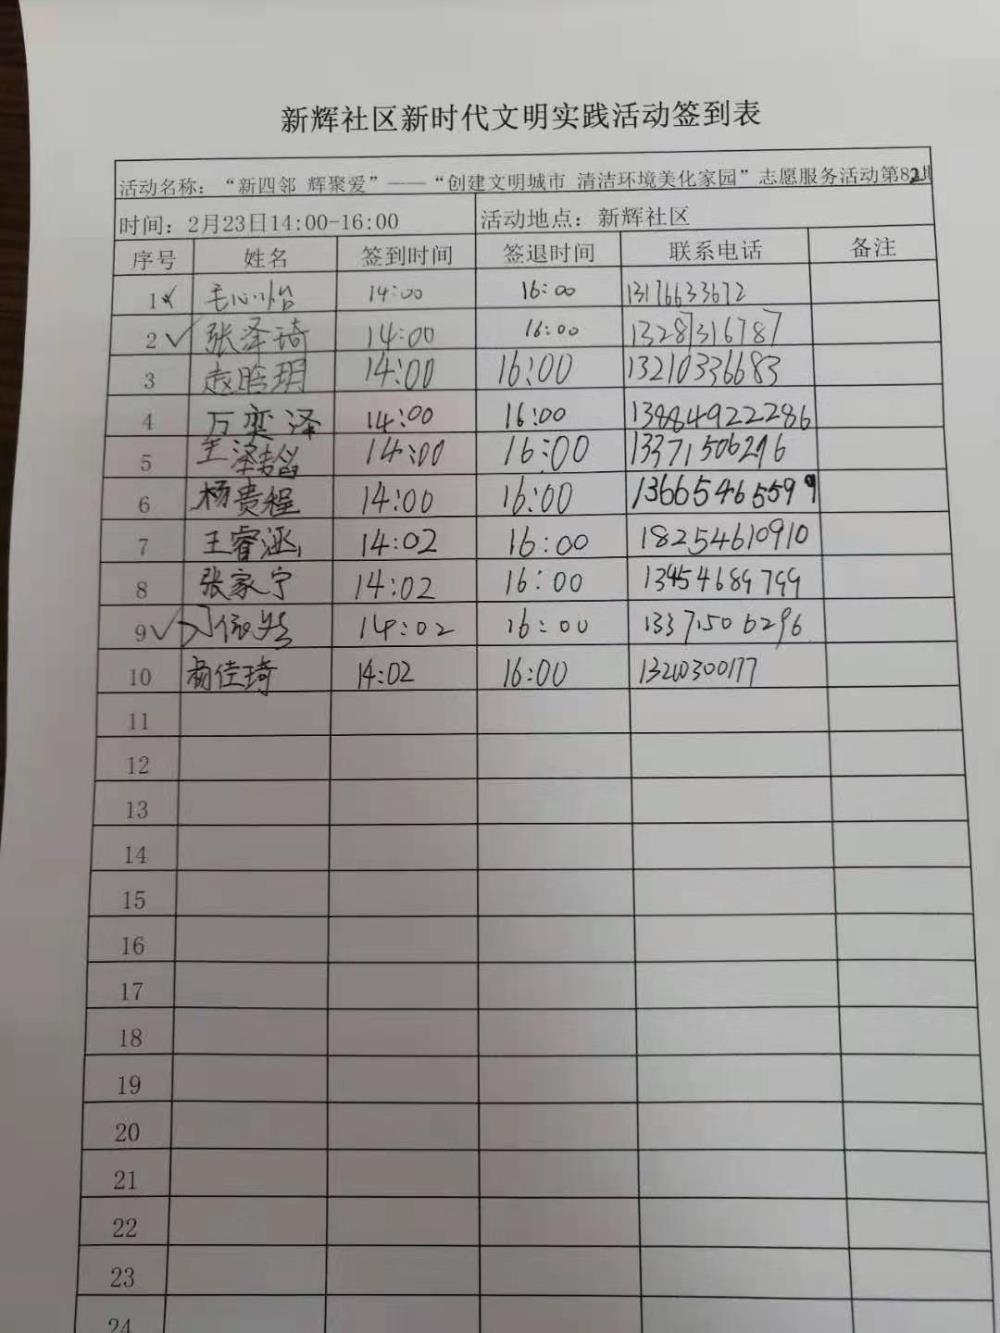 新辉社区新时代文明实践活动签到表
活动名称：“新四邻 辉聚爱”——“创建文明城市 清洁环境美化家园”志愿服务活动第82期
时间：2月23日14:00-16:00 活动地点：新辉社区
序号 姓名 签到时间 签退时间 联系电话 备注
1 14:00 16:00 13176633672
2 张泽琦 14:00 16:00 13287316787
3 赵晗玥 14:00 16:00 13210336683
4 万奕泽 14:00 16:00 13884922286
5 王泽 14:00 16:00 13371506296
6 杨贵程 14:00 16:00 13665465599
7 王睿涵 14:02 16:00 18254610910
8 张家宁 14:02 16:00 13454689799
9 14:02 16:00 13371506296
10 杨佳琦 14:02 16:00
11
12
13
14
15
16
17
18
19
20
21
22
23
24